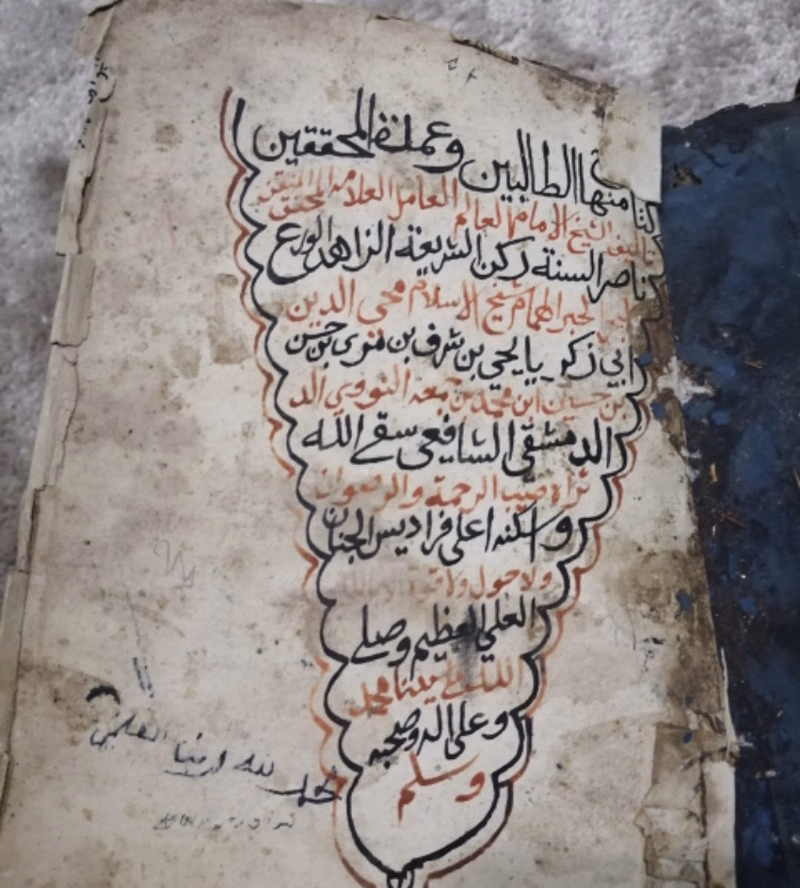 منهاا الطالبين وعمدة المحققين
تاليف الشيخ الامام العالم العامل العلامه المحقق
ناصر السنة ركن الشريعة الزاهد الورع
الحبر الهمام شيخ الاسلام محي الدين
ابي زكريا يحي بن شرف بن مرى بن حسن
بن حسين ابن محمد بن جمعة النووي الد
الدمشقى الشافعى سقى الله
ثراه صبيب الرحمة والرضوان
واسكنه اعلى فراديس الجنان
ولا حول ولا قوة الا بالله
العلي العظيم وصلى
الله على سيدنا محمد
وعلى اله وصحبه
وسلم